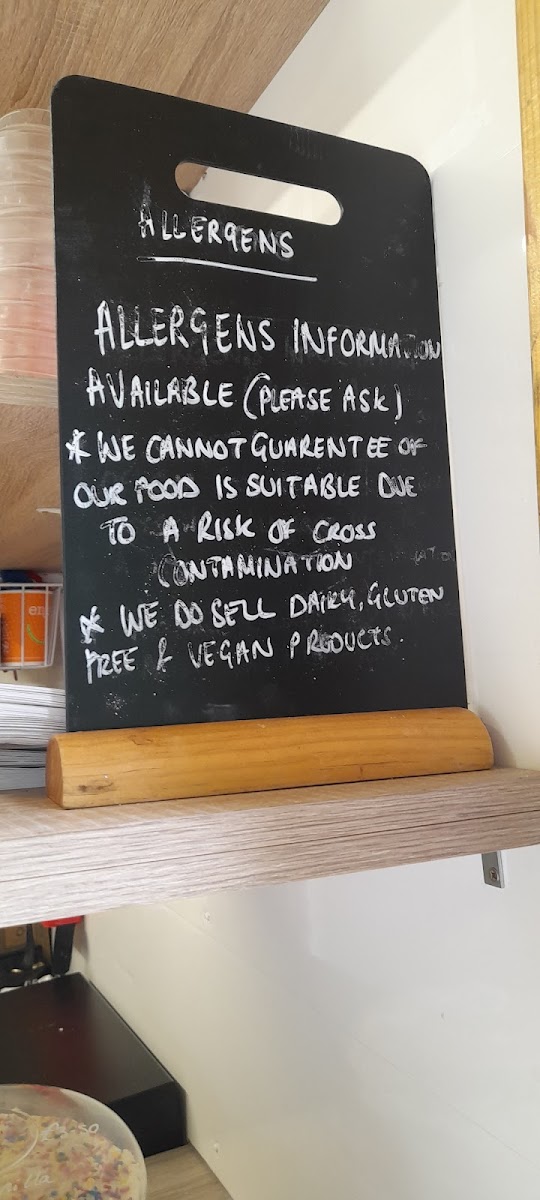 ALLERGENS
ALLERGENS INFORMATION
AVAILABLE (PLEASE ASK)
* WE CANNOT GUARENTEE OF
OUR FOOD IS SUITABLE DUE
TO A RISK OF CROSS
CONTAMINATION
* WE DO SELL DAIRY, GLUTEN
FREE & VEGAN PRODUCTS.